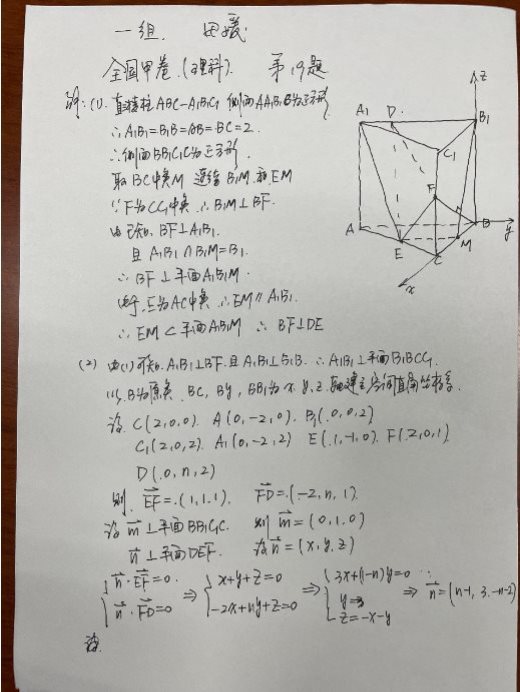 一组.
全国甲卷.(理科). 第19题
证:(1). 直棱柱ABC-A₁B₁C₁ 侧面AA₁B₁B为正方形
∴A₁B₁=B₁B=AB=BC=2.
∴侧面BB₁C₁C为正方形.
取BC中点M 连结B₁M.和EM
∵F为CC₁中点 ∴B₁M⊥BF.
由已知. BF⊥A₁B₁.
且 A₁B₁∩B₁M=B₁.
∴BF⊥平面A₁B₁M.
E为AC中点 ∴EM∥A₁B₁.
∴EM⊂平面A₁B₁M ∴BF⊥DE
(2) 由(1)可知.A₁B₁⊥BF.且A₁B₁⊥B₁B. ∴A₁B₁⊥平面B₁BCC₁.
以B为原点 BC, By, BB₁为x.y.z.轴建立空间直角坐标系.
设. C(2,0,0). A(0,-2,0). B₁(.0.0,2).
C₁(2,0,2). A₁(0,-2,2) E(.1,-1,0). F(.2,0,1).
D(.0,n,2)
则. EF=.(1,1,1). FD=.(-2,n,1).
设 m⊥平面BB₁C₁C. 则 m=(0,1.0)
n⊥平面DEF. 设n=(x,y,z)
{n·EF=0. n·FD=0 ⇒ {x+y+z=0 -2x+ny+z=0 ⇒ {3x+(1-n)y=0 y=3 z=-x-y ⇒ n=(n-1, 3.-n-2)
设.
A₁ D. B₁ C₁ F A B E M C x y z